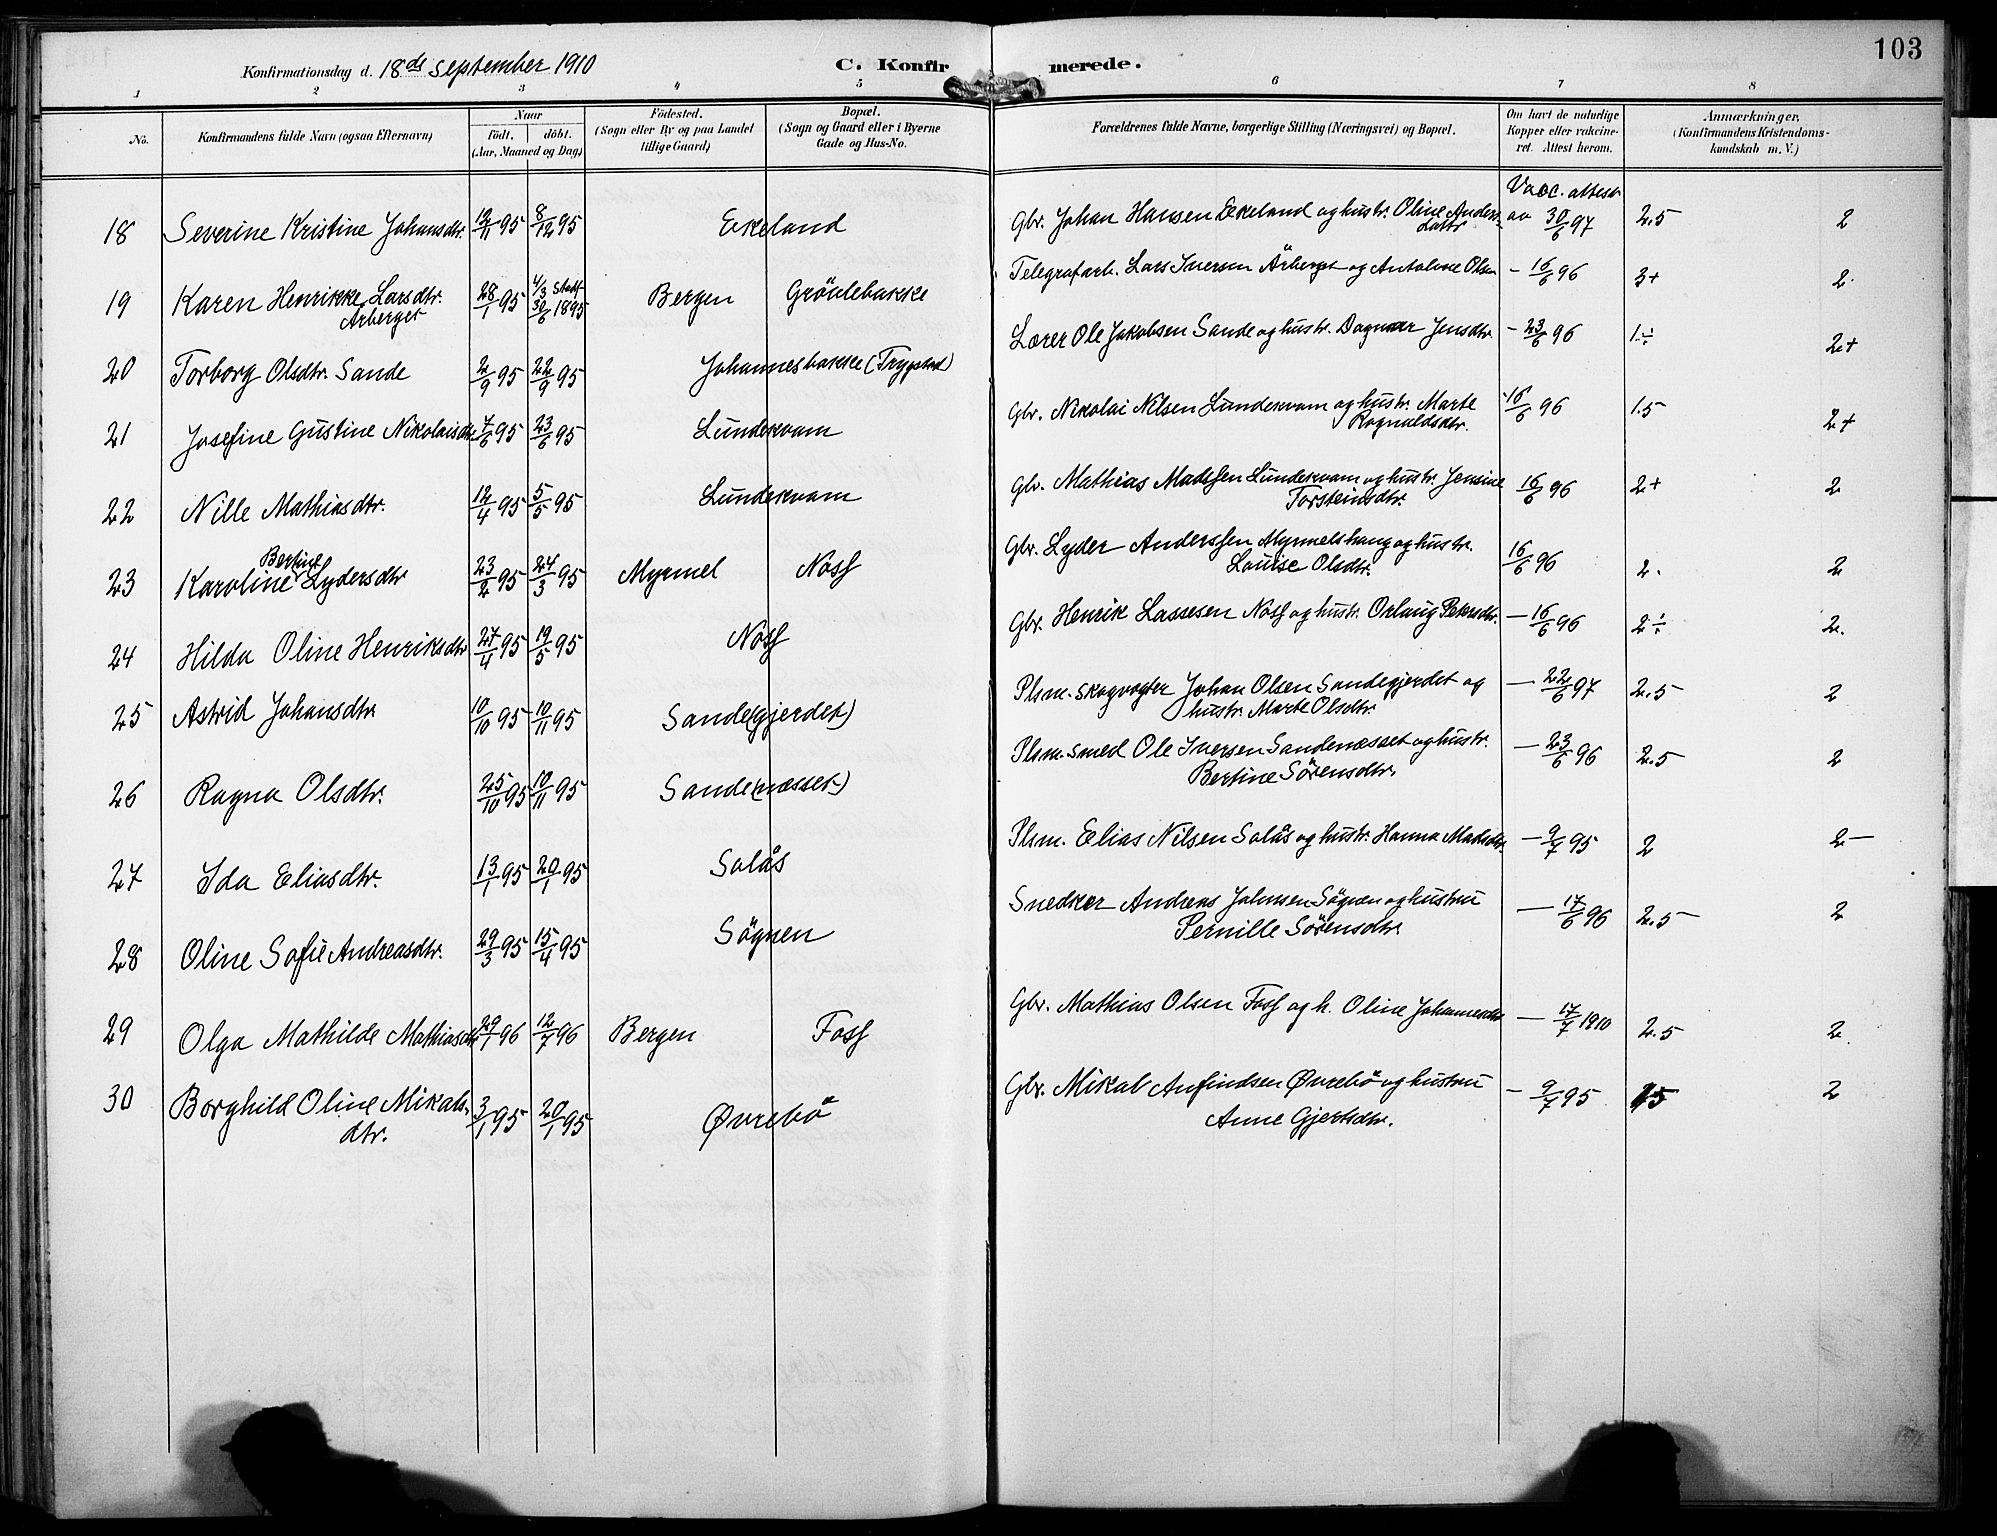 103
Konfirmationsdag d. 18de september 1910
C. Konfirmerede.
1 2 3 4 5 6 7 8
No.
Konfirmandens fulde Navn (ogsaa Efternavn)
Naar
födt. döbt.
(Aar, Maaned og Dag)
Födested.
(Sogn eller By og paa Landet
tillige Gaard)
Bopæl.
(Sogn og Gaard eller i Byerne
Gade og Hus-No.
Forældrenes fulde Navne, borgerlige Stilling (Næringsvei) og Bopæl.
Om havt de naturlige
Kopper eller vakcine-
ret. Attest herom.
Anmærkninger.
(Konfirmandens Kristendoms-
kundskab m. V.)
18 Severine Kristine Johansdtr. 12/11 95 8/12 95 Ekeland Gbr. Johan Hansen Ekeland og hustr. Oline Anders- Vacc. attest av 30/6 97 2.5 2
19 Karen Henrikke Larsdtr. 28/1 95 4/3 30/6 1895 Bergen Grödebakke Telegrafarb. Lars Iversen Årberget og Antoline Olsen - 16/6 96 3+ 2.
Årberget
20 Torborg Olsdtr. Sande 2/9 95 22/9 95 Johannesbakke Lærer Ole Jakobsen Sande og hustr. Dagmar Jensdtr. - 23/6 96 1÷ 2+
21 Josefine Gustine Nikolaisdtr. 7/6 95 23/6 95 Lundekvam Gbr. Nikolai Nilsen Lundekvam og hustr. Marte 16/6 96 1.5 2+
Ragnaldsdtr.
22 Nille Mathiasdtr. 12/4 95 5/5 95 Lundekvam Gbr. Mathias Madssen Lundekvam og hustr. Jensine 16/6 96 2+ 2
Torsteinsdtr.
Bertine
23 Karoline Lydersdtr 23/2 95 24/3 95 Myrmel Noss Gbr. Lyder Anderssen Myrmelshaug og hustr. 16/6 96 2. 2
Louise Olsdtr.
24 Hilda Oline Henriksdtr 27/4 95 19/5 95 Noss Gbr. Henrik Lassesen Noss og hustr. Orlaug Petersdtr. - 16/6 96 2÷ 2.
25 Astrid Johansdtr 10/10 95 10/11 95 Sande(gjerdet) Plsm. skogvogter Johan Olsen Sandegjerdet og - 22/6 97 2.5 2
hustr. Marte Olsdtr.
26 Ragna Olsdtr. 25/10 95 10/11 95 Sande(næsset) Plsm. smed Ole Iversen Sandenæsset og hustr. - 23/6 96 2.5 2
Bertine Sörensdtr.
27 Ida Eliasdtr. 13/1 95 20/1 95 Solås Plsm. Elias Nilsen Solås og hustr. Hanna Madsdtr. - 9/7 95 2 2-
28 Oline Sofie Andreasdtr. 29/3 95 15/4 95 Sögnen Snedker Andreas Johnsen Sögnen og hustru - 17/6 96 2.5 2
Pernille Sörensdtr.
29 Olga Mathilde Mathiasdtr 29/1 96 12/7 96 Bergen Foss Gbr. Mathias Olsen Foss og h. Oline Johannesdtr - 17/7 1910 2.5 2
30 Borghild Oline Mikals- 3/1 95 20/1 95 Øvrebö Gbr. Mikal Anfindsen Øvrebö og hustru - 9/7 95 15 2
dtr. Anne Gjertsdtr.